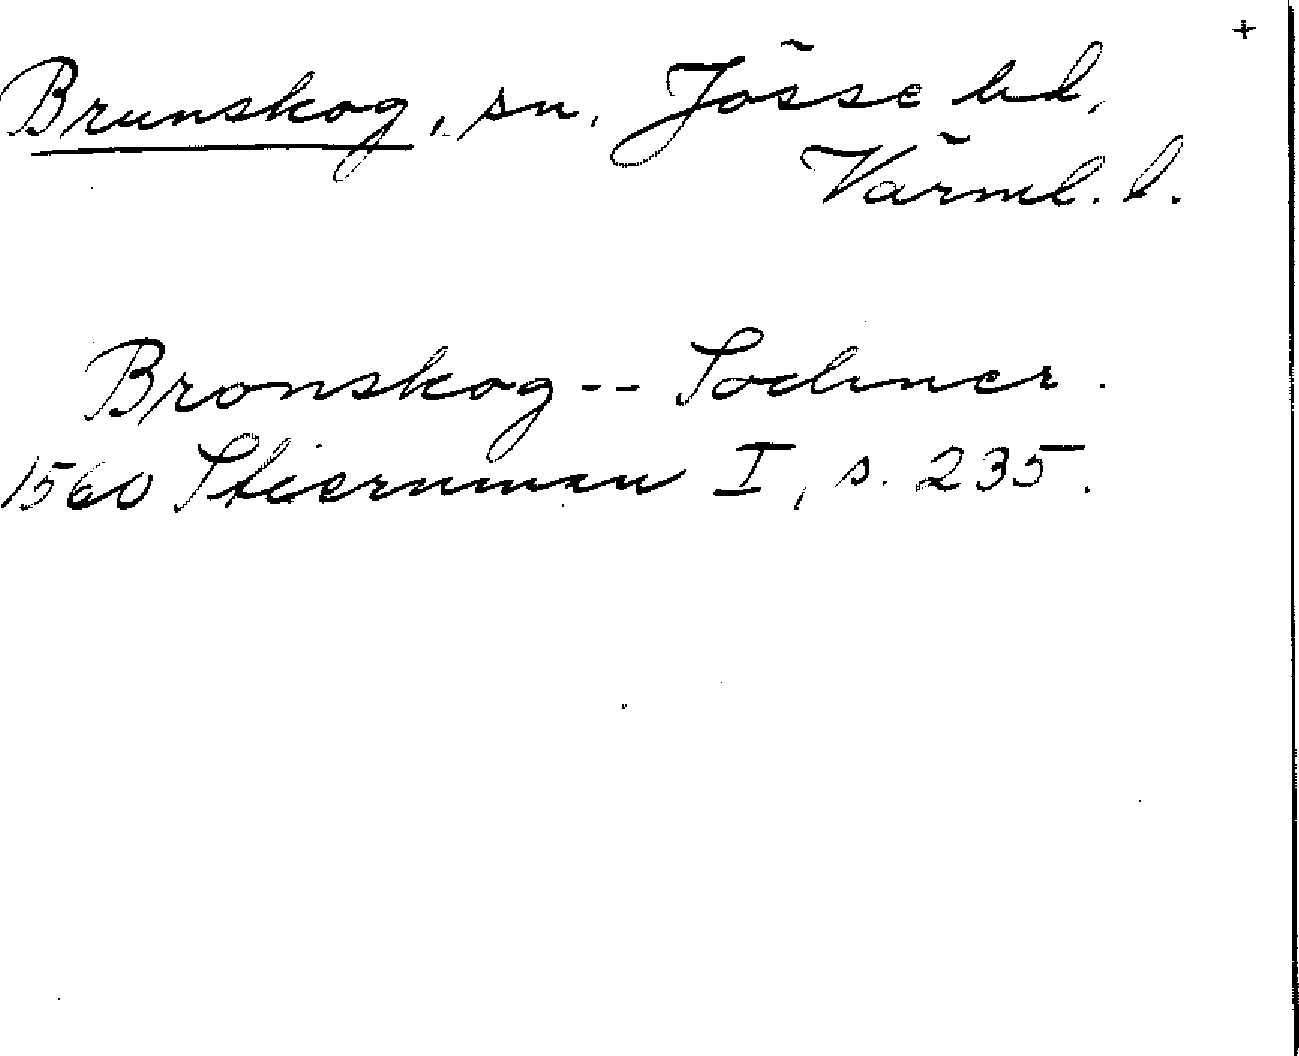 +
Brunskog, sn, Jösse hd,
Värml. l.
Bronskog -- Sochner.
1560 Stiernman I, s. 235.